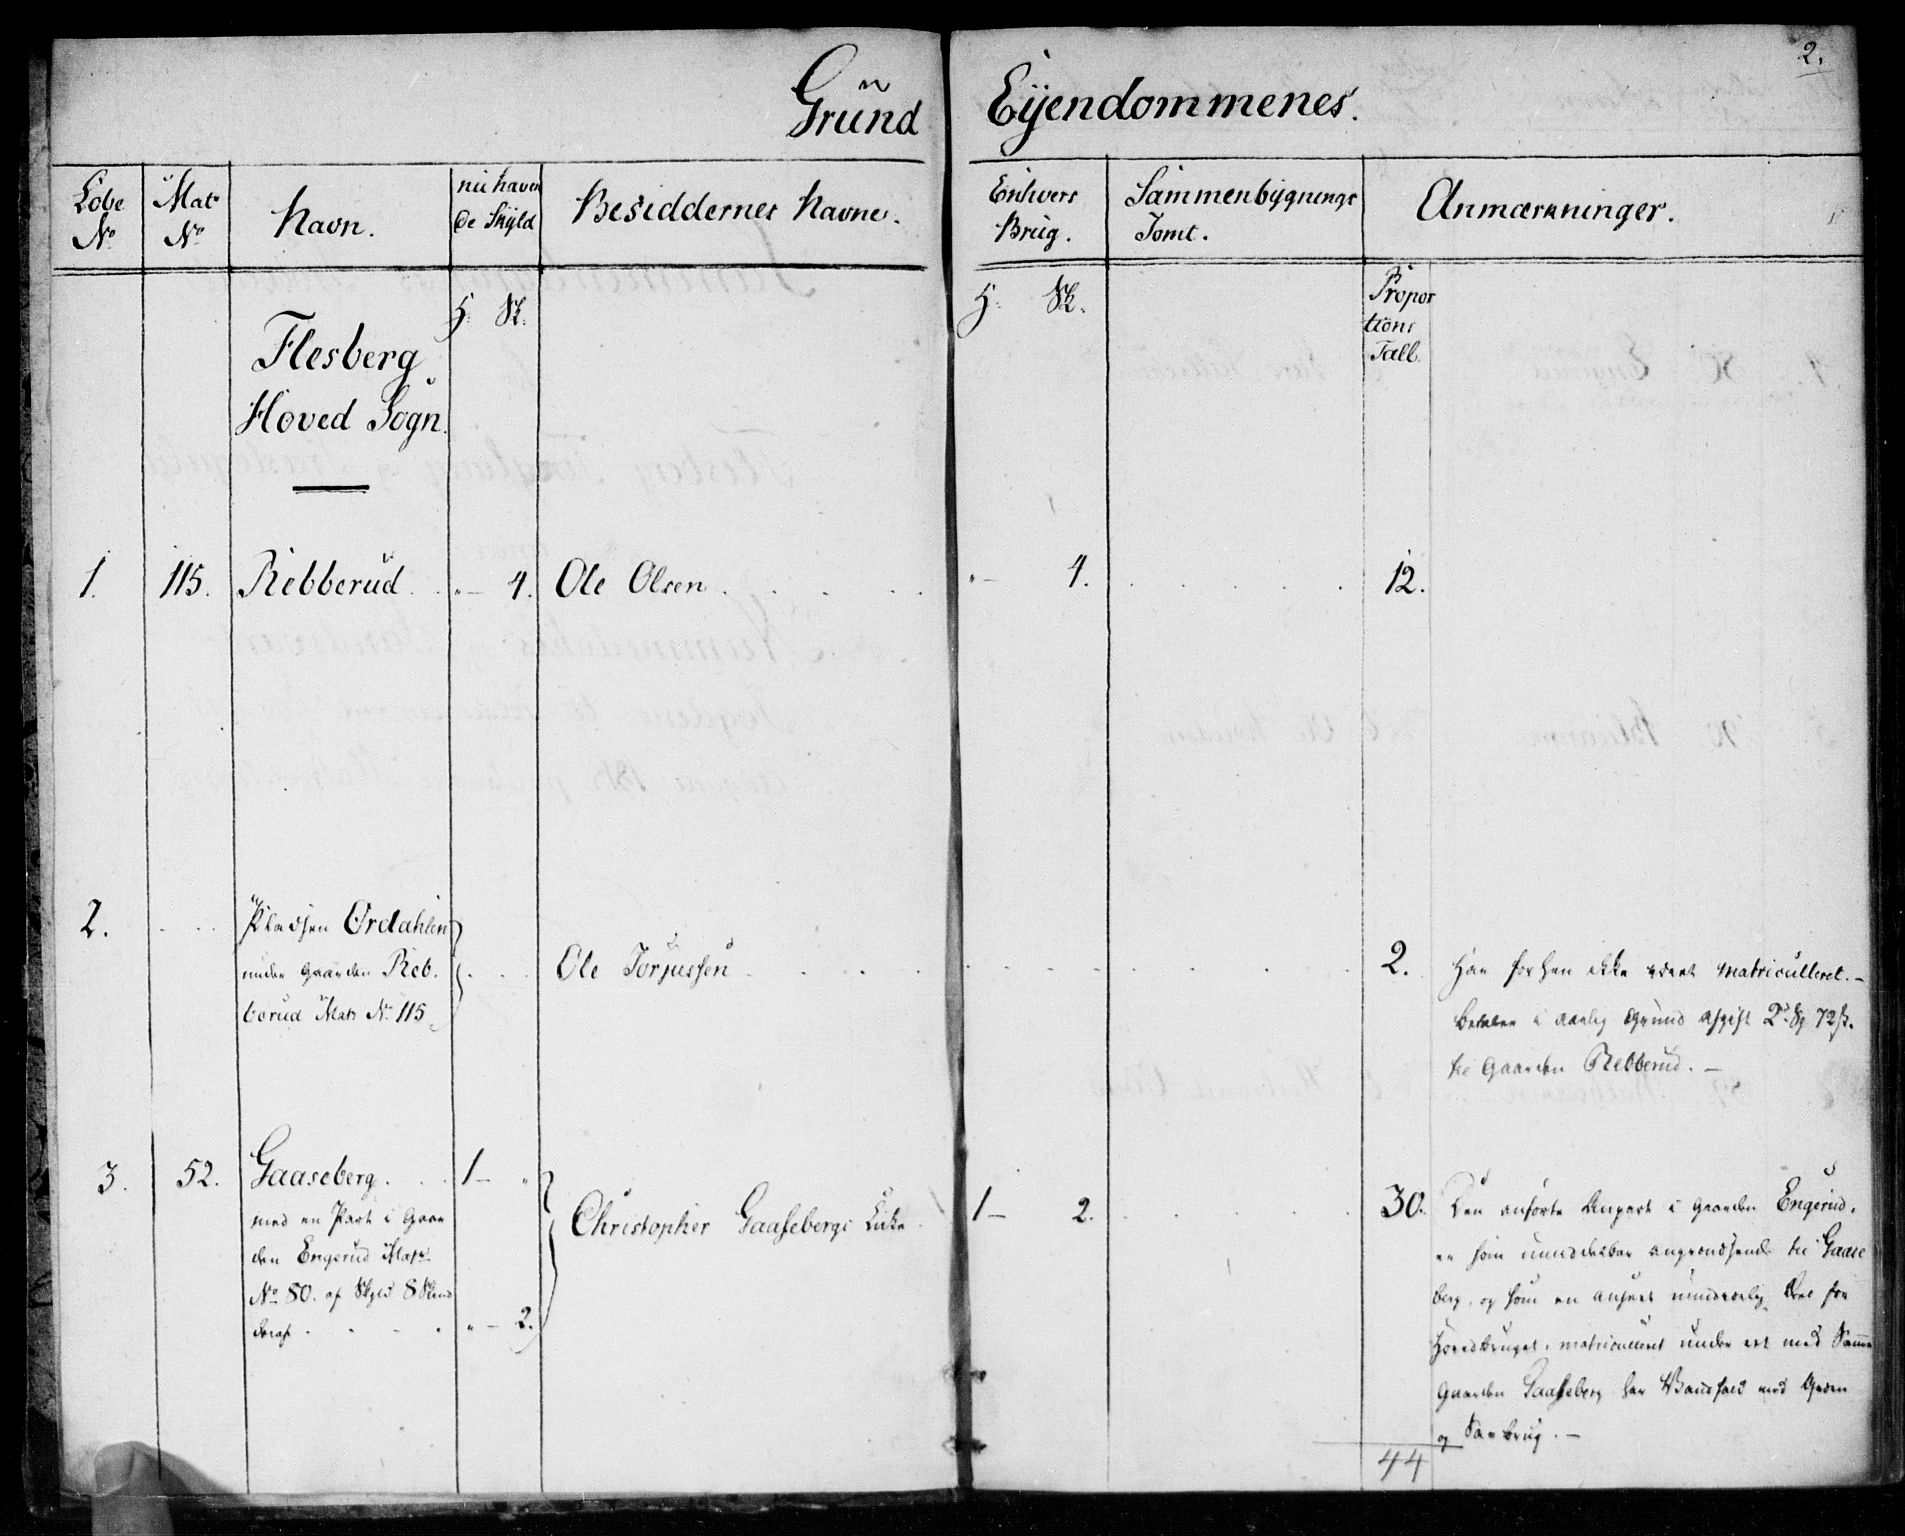 2.
Grund Eijendommenes.
Løbe No
Matr No
Navn.
nu haven
de Skÿld
Besiddernes Navne.
Enhvers
Brug.
Sammenbÿgnings
Tomt.
Anmærkninger.
H: Sk:
H: Sk.
Propor
tions
Tall.
Flesberg
Hoved Sogn.
1. 115. Rebberud. " – 4. Ole Olsen. " – 4. 12.
2. Pladsen Ørdahlen
under Gaarden Reb.
berud Matr No 115
Ole Torjussen
2. Har forhen ikke været matriculleret. –
betaler i aarlig Grund Afgift 2 Sp 72 s.
til Gaarden Rebberud. –
3. 52. Gaaseberg. 1 – "
med en Part i Gaar
den Engerud Matr
No 80. af Skyld 8 Skind
deraf " – 2.
Christopher Gaasebergs Enke
1 – 2. 30.
Den anførte Anpart i Gaarden Engerud,
er som umiddelbar angrændsende til Gaase
berg, og som en anseet nundværlig Deel for
Hovedbruget, matriculleret under eet med Samme
Gaarden Gaaseberg har Vandfald med Qvern
og Saugbrug. –
44